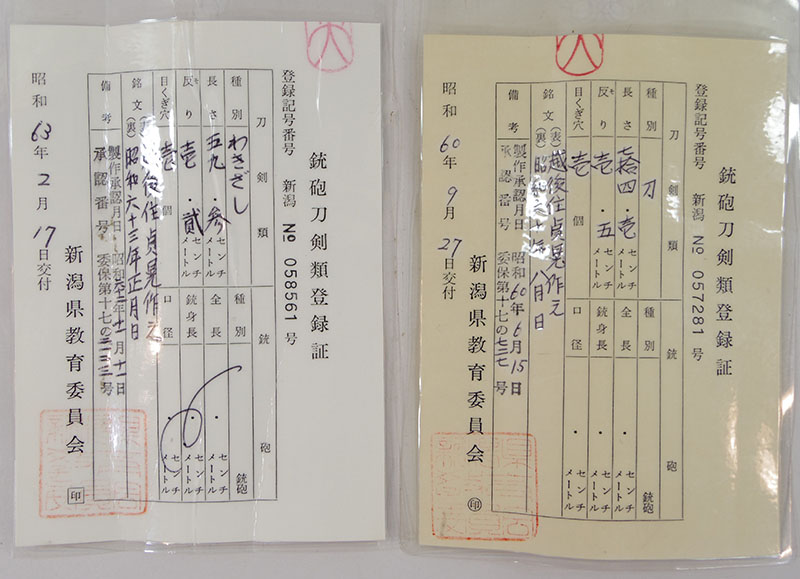 銃砲刀剣類登録証
登録記号番号 新潟 № 057281 号
刀剣類 銃砲
種別 刀 種別 銃砲
長さ 七拾四・壱 センチメートル 全長 ・ センチメートル
反り 壱・五 センチメートル 銃身長 ・ センチメートル
目くぎ穴 壱個 口径 ・ センチメートル
銘文 (表) 越後住貞晃作之
(裏) 昭和六十年八月日
備考 製作承認月日 昭和60年6月15日
承認番号 委保第十七の 号
昭和60年9月27日交付
新潟県教育委員会 印
銃砲刀剣類登録証
登録記号番号 新潟 № 058561 号
刀剣類 銃砲
種別 わきざし 種別 銃砲
長さ 五九・参 センチメートル 全長 ・ センチメートル
反り 壱・貳 センチメートル 銃身長 ・ センチメートル
目くぎ穴 壱個 口径 ・ センチメートル
銘文 (表) 越後住貞晃作之
(裏) 昭和六十三年正月日
備考 製作承認月日 昭和六二年十一月十一日
承認番号 委保第十七の 号
昭和63年2月17日交付
新潟県教育委員会 印